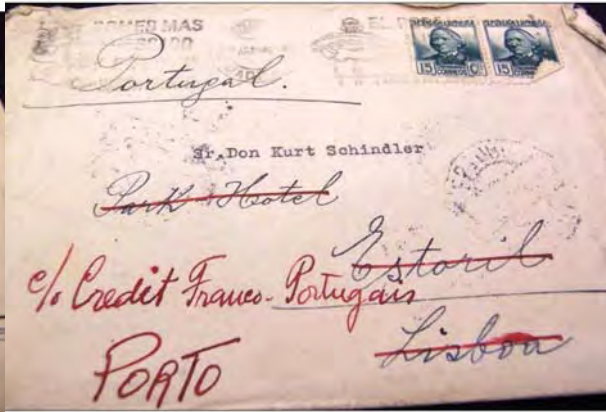 COMED MAS
EL
15 CORREOS C 15 CORREOS C
Portugal.
Sr.Don Kurt Schindler
Park Hotel
Estoril
c/o Credit Franco-Portugais
Lisboa
PORTO